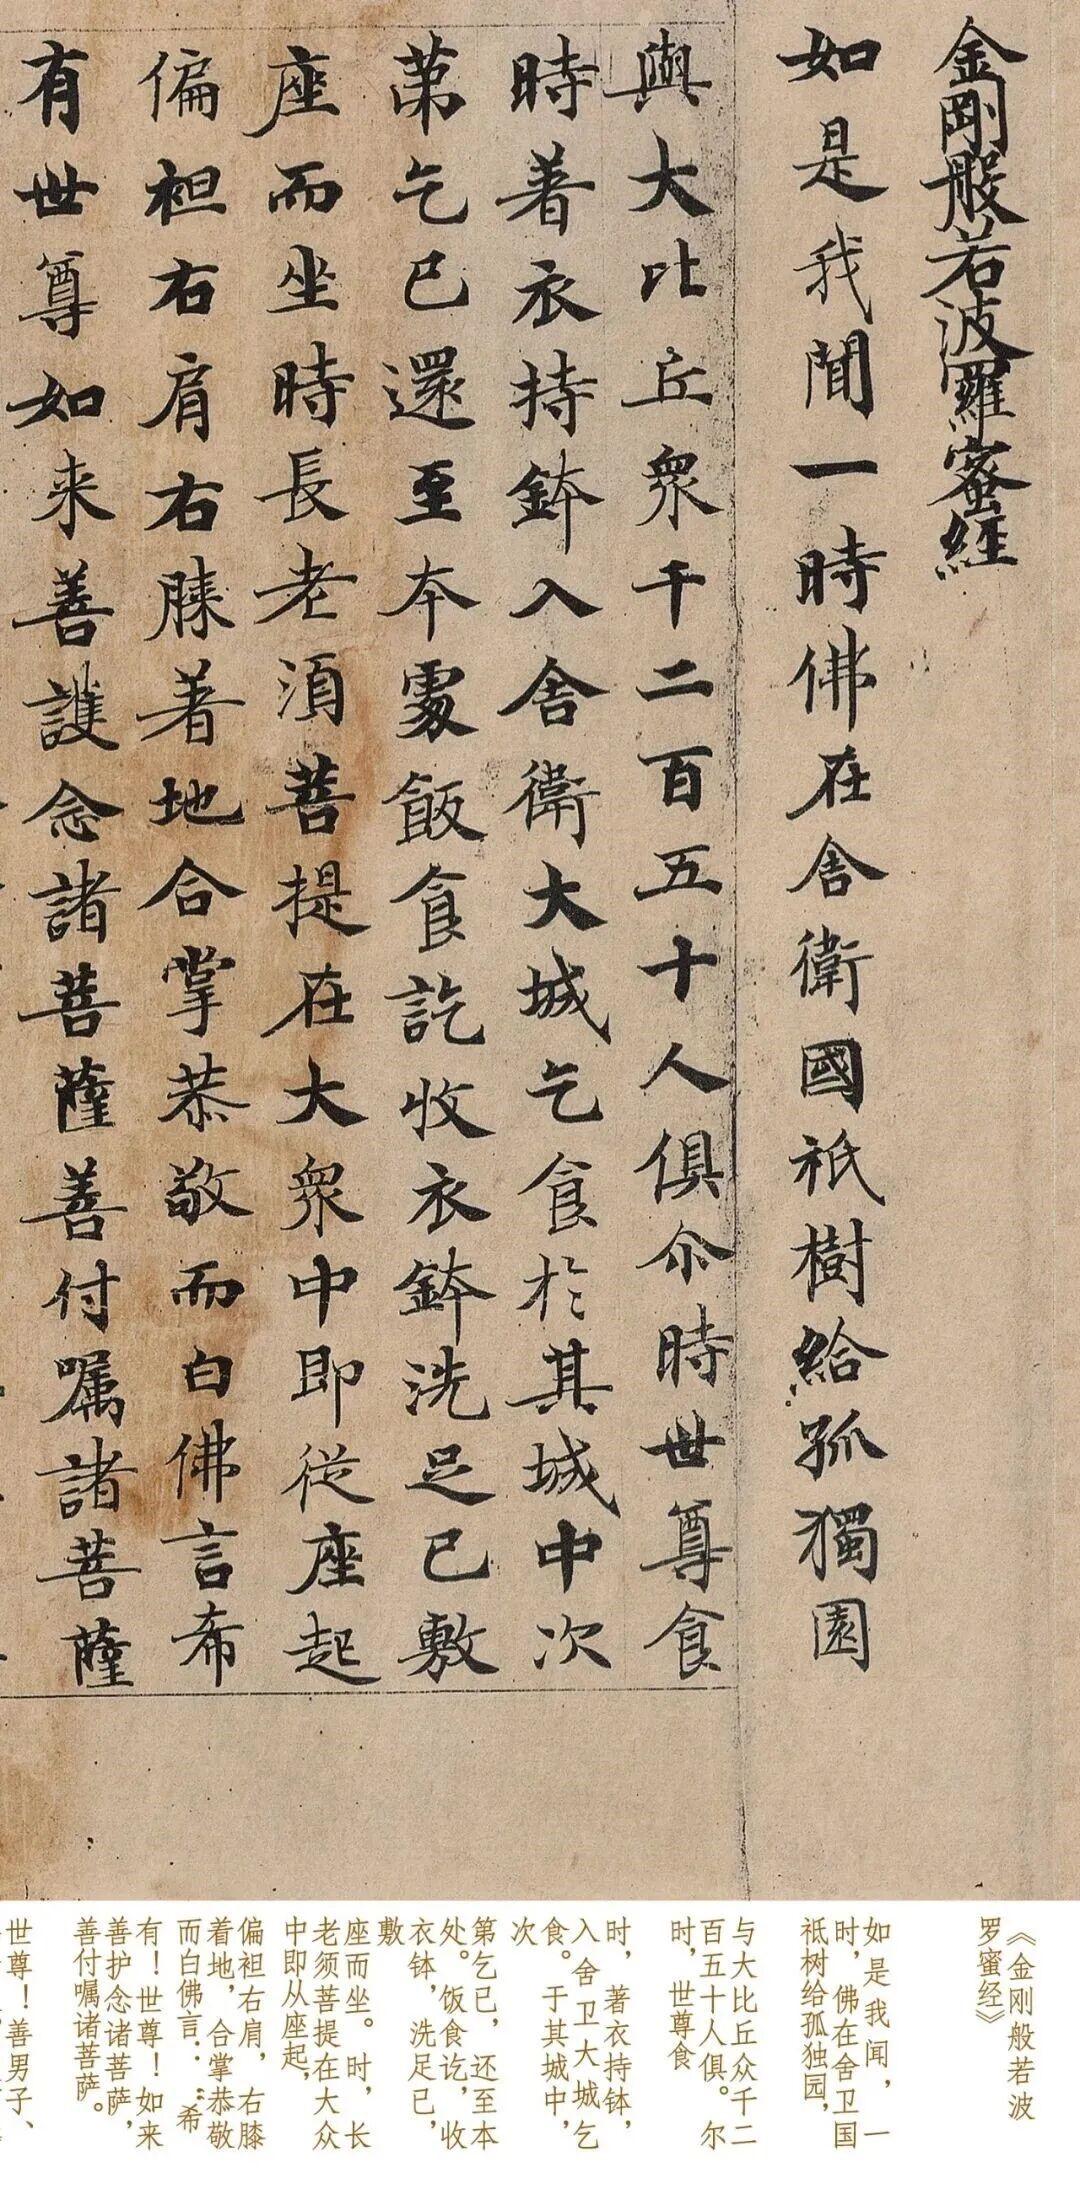 金剛般若波羅蜜經
如是我聞一時佛在舍衛國祇樹給孤獨園
與大比丘眾千二百五十人俱尒時世尊食
時著衣持鉢入舍衛大城乞食於其城中次
第乞已還至本處飯食訖收衣鉢洗足已敷
座而坐時長老須菩提在大眾中即從座起
偏袒右肩右膝著地合掌恭敬而白佛言希
有世尊如来善護念諸菩薩善付嘱諸菩薩
《金刚般若波
罗蜜经》
如是我闻，一
时，佛在舍卫国
祇树给孤独园，
与大比丘众千二
百五十人俱。尔
时，世尊食
时，著衣持钵，
入舍卫大城乞
食。于其城中，
次
第乞已，还至本
处。饭食讫，收
衣钵，洗足已，
敷
座而坐。时，长
老须菩提在大众
中即从座起，
偏袒右肩，右膝
着地，合掌恭敬
而白佛言：“希
有！世尊！如来
善护念诸菩萨，
善付嘱诸菩萨。
世尊！善男子、